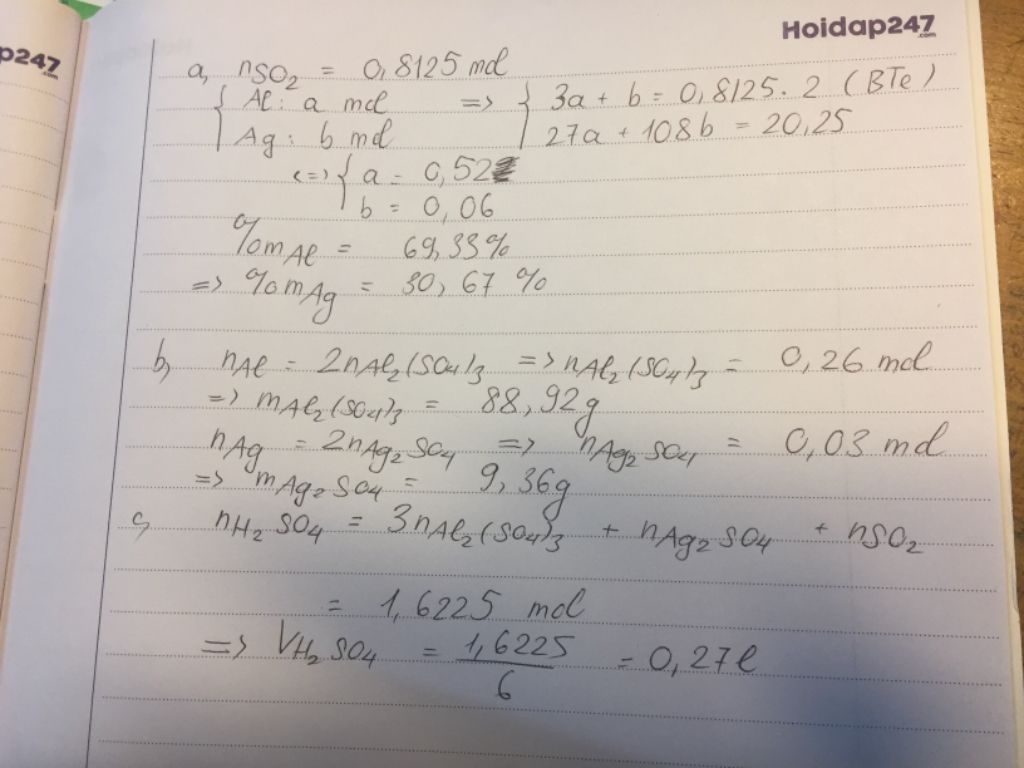 Hoidap247
.com
p247
.com
a, nSO2 = 0,8125 mol
{ Al: a mol => { 3a + b = 0,8125. 2 (BTe)
Ag: b mol 27a + 108b = 20,25
<=> { a = 0,52
b = 0,06
%mAl = 69,33%
=> %mAg = 30,67 %
b, nAl = 2nAl2(SO4)3 => nAl2(SO4)3 = 0,26 mol
=> mAl2(SO4)3 = 88,92g
nAg = 2nAg2SO4 => nAg2SO4 = 0,03 mol
=> mAg2SO4 = 9,36g
c, nH2SO4 = 3nAl2(SO4)3 + nAg2SO4 + nSO2
= 1,6225 mol
=> VH2SO4 = 1,6225/6 = 0,27l